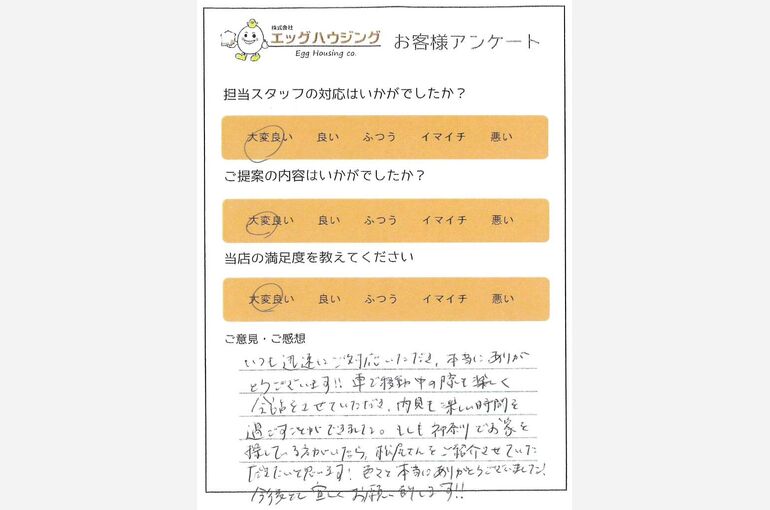 株式会社
エッグハウジング
Egg Housing co.
お客様アンケート
担当スタッフの対応はいかがでしたか？
大変良い 良い ふつう イマイチ 悪い
ご提案の内容はいかがでしたか？
大変良い 良い ふつう イマイチ 悪い
当店の満足度を教えてください
大変良い 良い ふつう イマイチ 悪い
ご意見・ご感想
いつも迅速にご対応いただき、本当にありが
とうございます!! 車で移動中の際も楽しく
会話をさせていただき、内見も楽しい時間を
過ごすことができました。もしも神奈川でお家を
探している方がいたら、松尾さんをご紹介させていた
だきたいと思います! 色々と本当にありがとうございました!
今後とも宜しくお願い致します!!